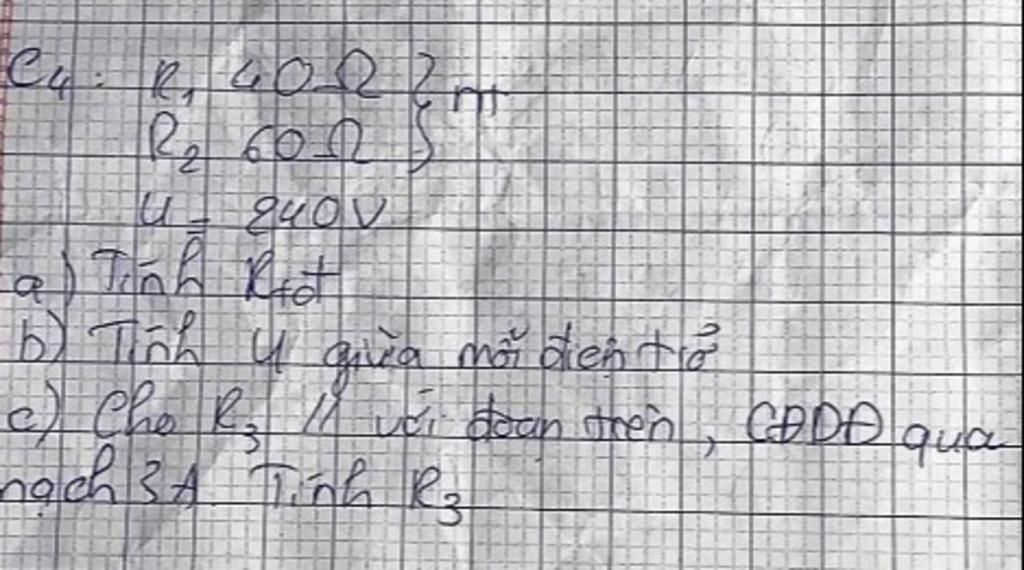 C4: R1 40Ω } nt
R2 60Ω }
U = 240V
a) Tính Rtđ
b) Tính U giữa mỗi điện trở
c) Cho R3 // với đoạn trên, CĐDĐ qua
mạch 3A Tính R3